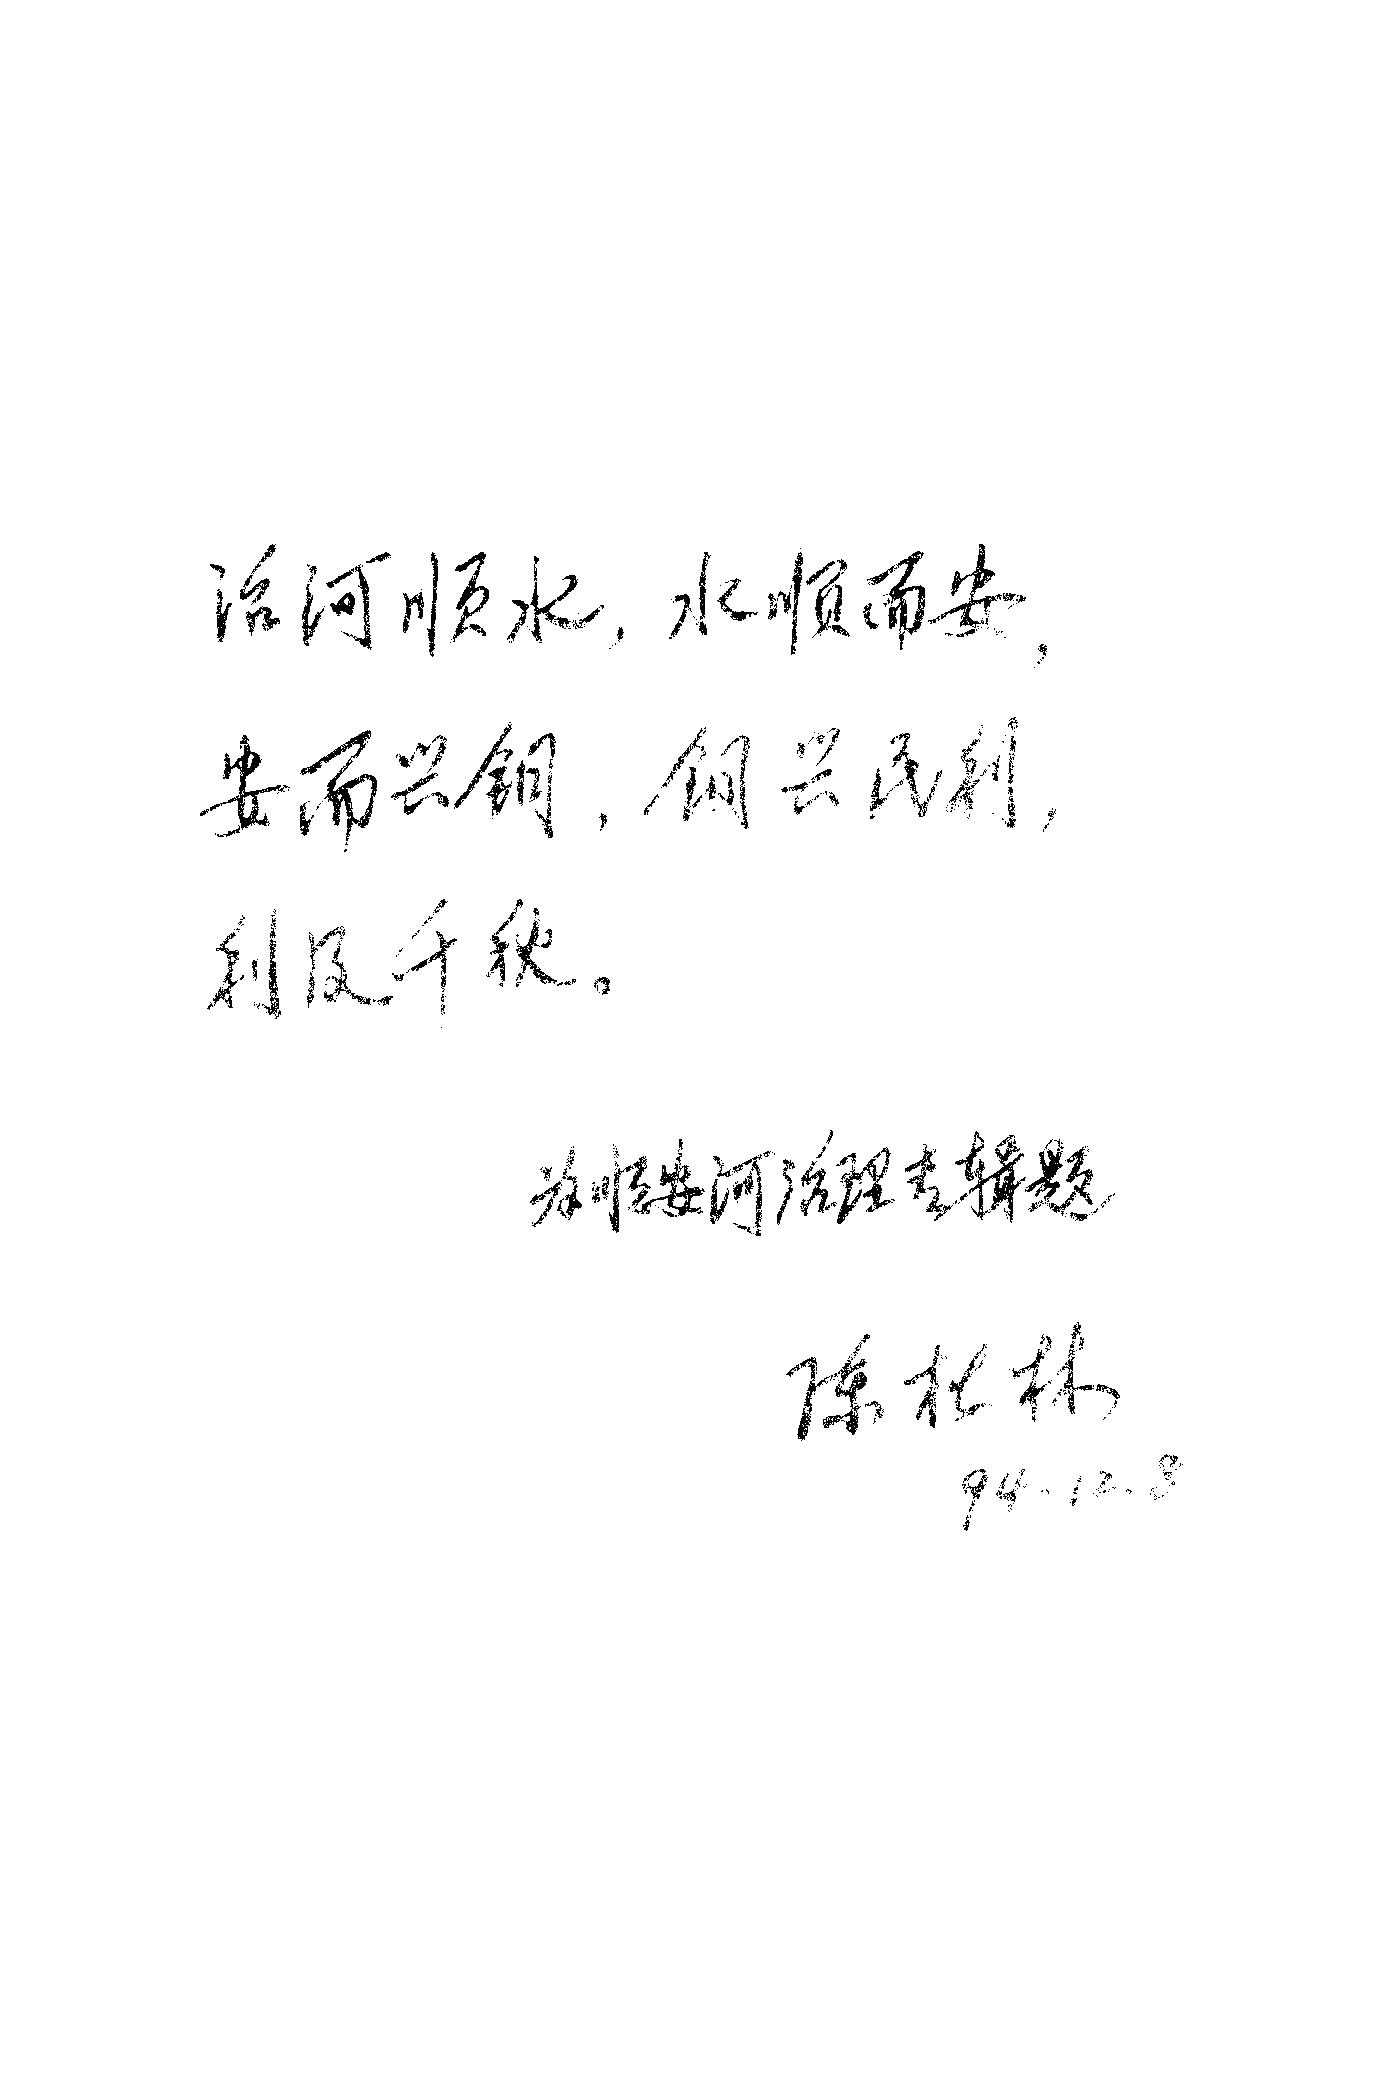 治河顺水，水顺而安，
安而兴铜，铜兴民利，
利及千秋。
为顺安河治理专辑题
陈松林
94.12.8